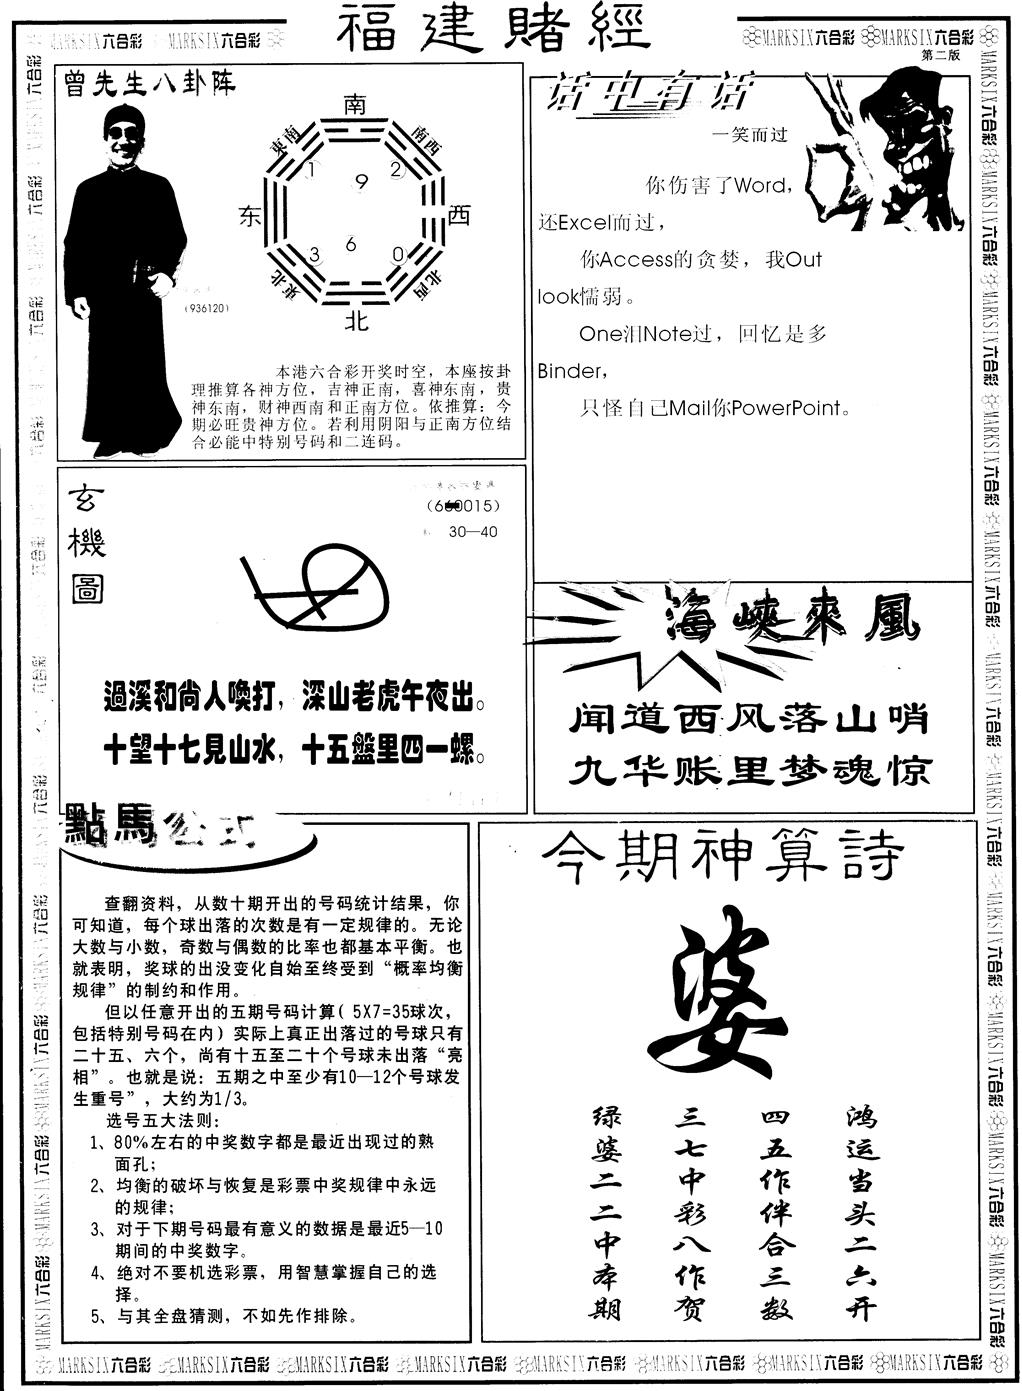 福建賭經
MARKSIX六合彩 MARKSIX六合彩
MARKSIX六合彩 MARKSIX六合彩
第二版
曾先生八卦阵
南
東南
南西
1
9
2
东
西
3
6
0
東北
北西
北
(936120)
本港六合彩开奖时空，本座按卦
理推算各神方位，吉神正南，喜神东南，贵
神东南，财神西南和正南方位。依推算：今
期必旺贵神方位。若利用阴阳与正南方位结
合必能中特别号码和二连码。
话中有话
一笑而过
你伤害了Word，
还Excel而过，
你Access的贪婪，我Out
look懦弱。
One泪Note过，回忆是多
Binder，
只怪自己Mail你PowerPoint。
玄機圖
30—40
過溪和尚人喚打，深山老虎午夜出。
十望十七見山水，十五盤里四一螺。
海峽來風
闻道西风落山哨
九华账里梦魂惊
點馬公式
查翻资料，从数十期开出的号码统计结果，你
可知道，每个球出落的次数是有一定规律的。无论
大数与小数，奇数与偶数的比率也都基本平衡。也
就表明，奖球的出没变化自始至终受到“概率均衡
规律”的制约和作用。
但以任意开出的五期号码计算( 5X7=35球次，
包括特别号码在内）实际上真正出落过的号球只有
二十五、六个，尚有十五至二十个号球未出落“亮
相”。也就是说：五期之中至少有10—12个号球发
生重号”，大约为1/3。
选号五大法则：
1、80%左右的中奖数字都是最近出现过的熟
面孔；
2、均衡的破坏与恢复是彩票中奖规律中永远
的规律；
3、对于下期号码最有意义的数据是最近5—10
期间的中奖数字。
4、绝对不要机选彩票，用智慧掌握自己的选
择。
5、与其全盘猜测，不如先作排除。
今期神算詩
婆
鸿运当头二六开
四五作伴合三数
三七中彩八作贺
绿婆二二中本期
MARKSIX六合彩 MARKSIX六合彩 MARKSIX六合彩 MARKSIX六合彩 MARKSIX六合彩 MARKSIX六合彩 MARKSIX六合彩 MARKSIX六合彩